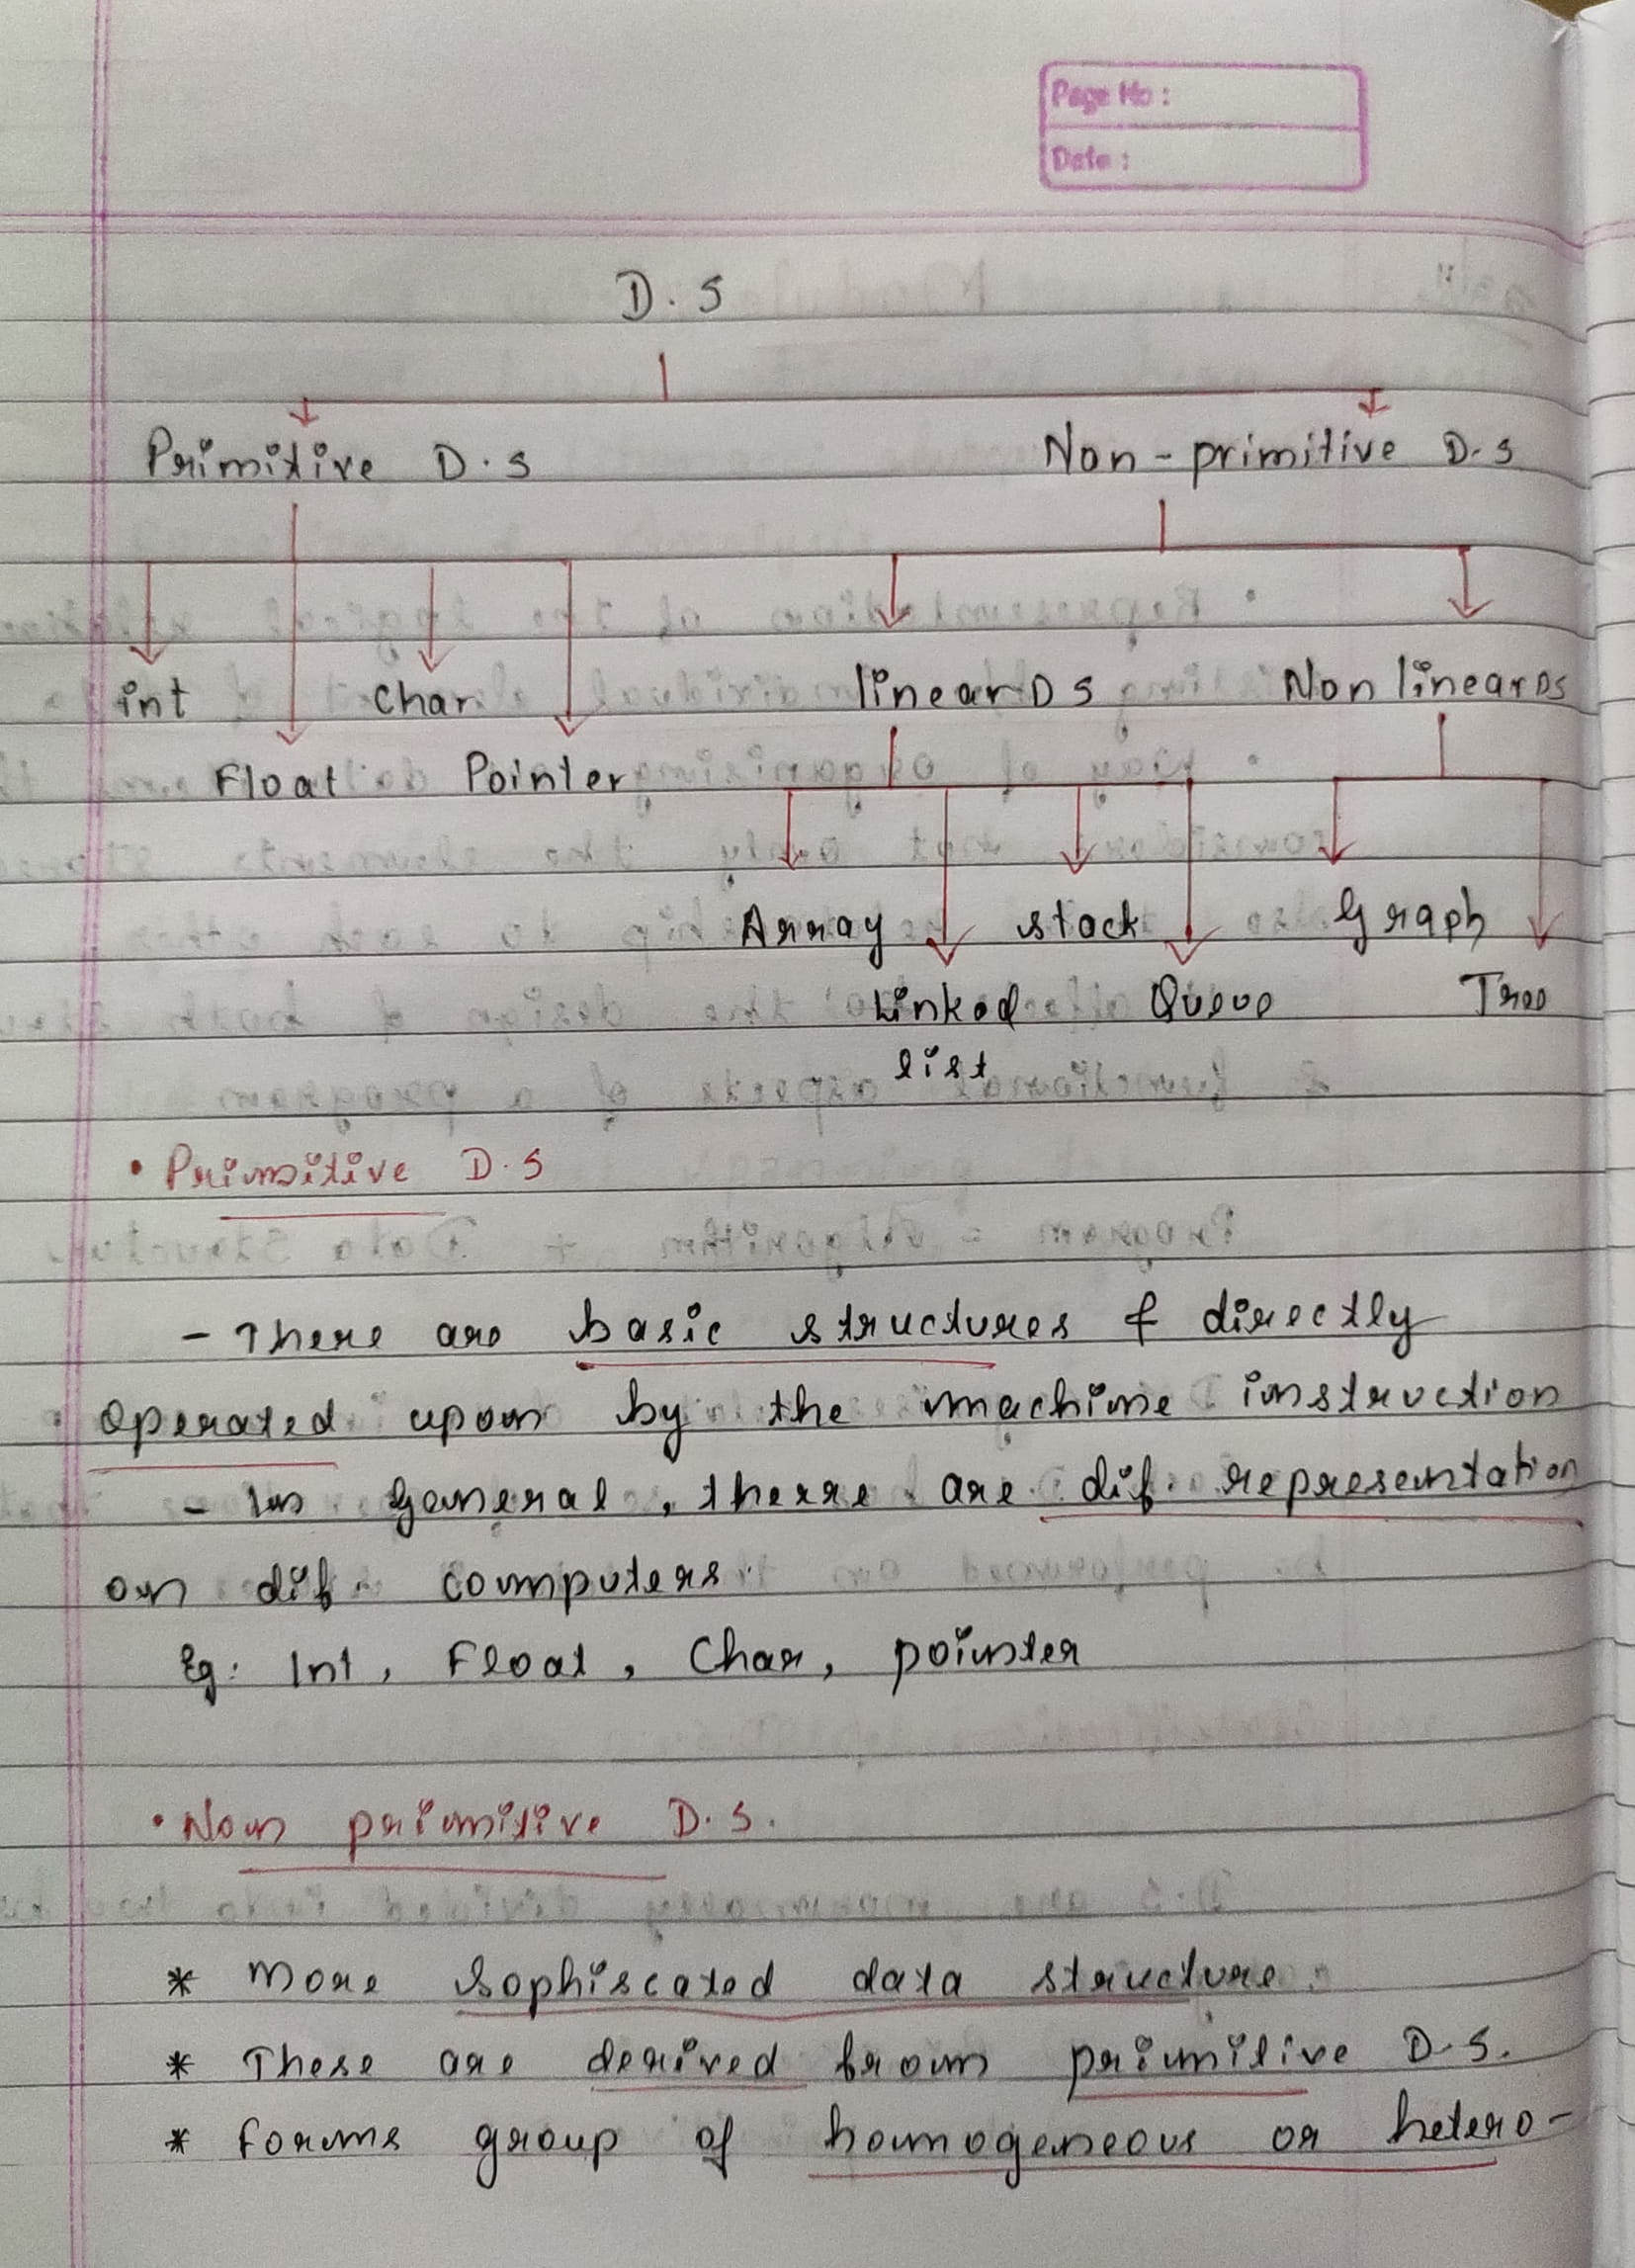 Page No :
Date :
D.S
Primitive D.S Non-primitive D.S
int Char linear DS Non linear DS
Float Pointer
Array stack Graph
Linked Queue Tree
list
• Primitive D.S
- There are basic structures & directly
operated upon by the machine instruction
- In general, therre are dif. representation
on dif. computers.
Eg: Int, Float, Char, pointer
• Non primitive D.S.
* More Sophiscated data structure.
* These are derived from primitive D.S.
* Forms group of homogeneous or hetero-